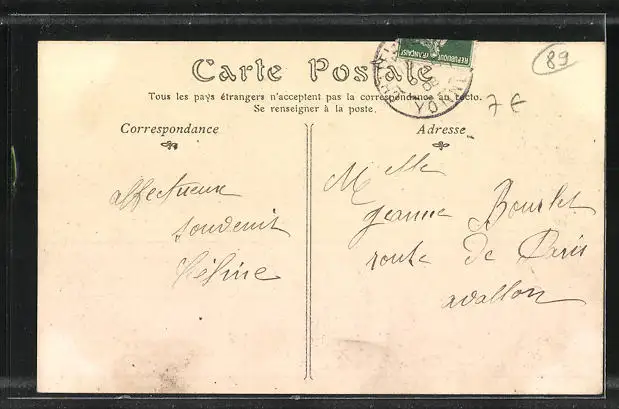 Carte Postale
Tous les pays étrangers n'acceptent pas la correspondance au recto.
Se renseigner à la poste.
RÉPUBLIQUE FRANÇAISE
YONNE
89
7 €
Correspondance
Adresse
affectueux
souvenir
Hélène
Melle
Jeanne Bourlet
route de Paris
avallon